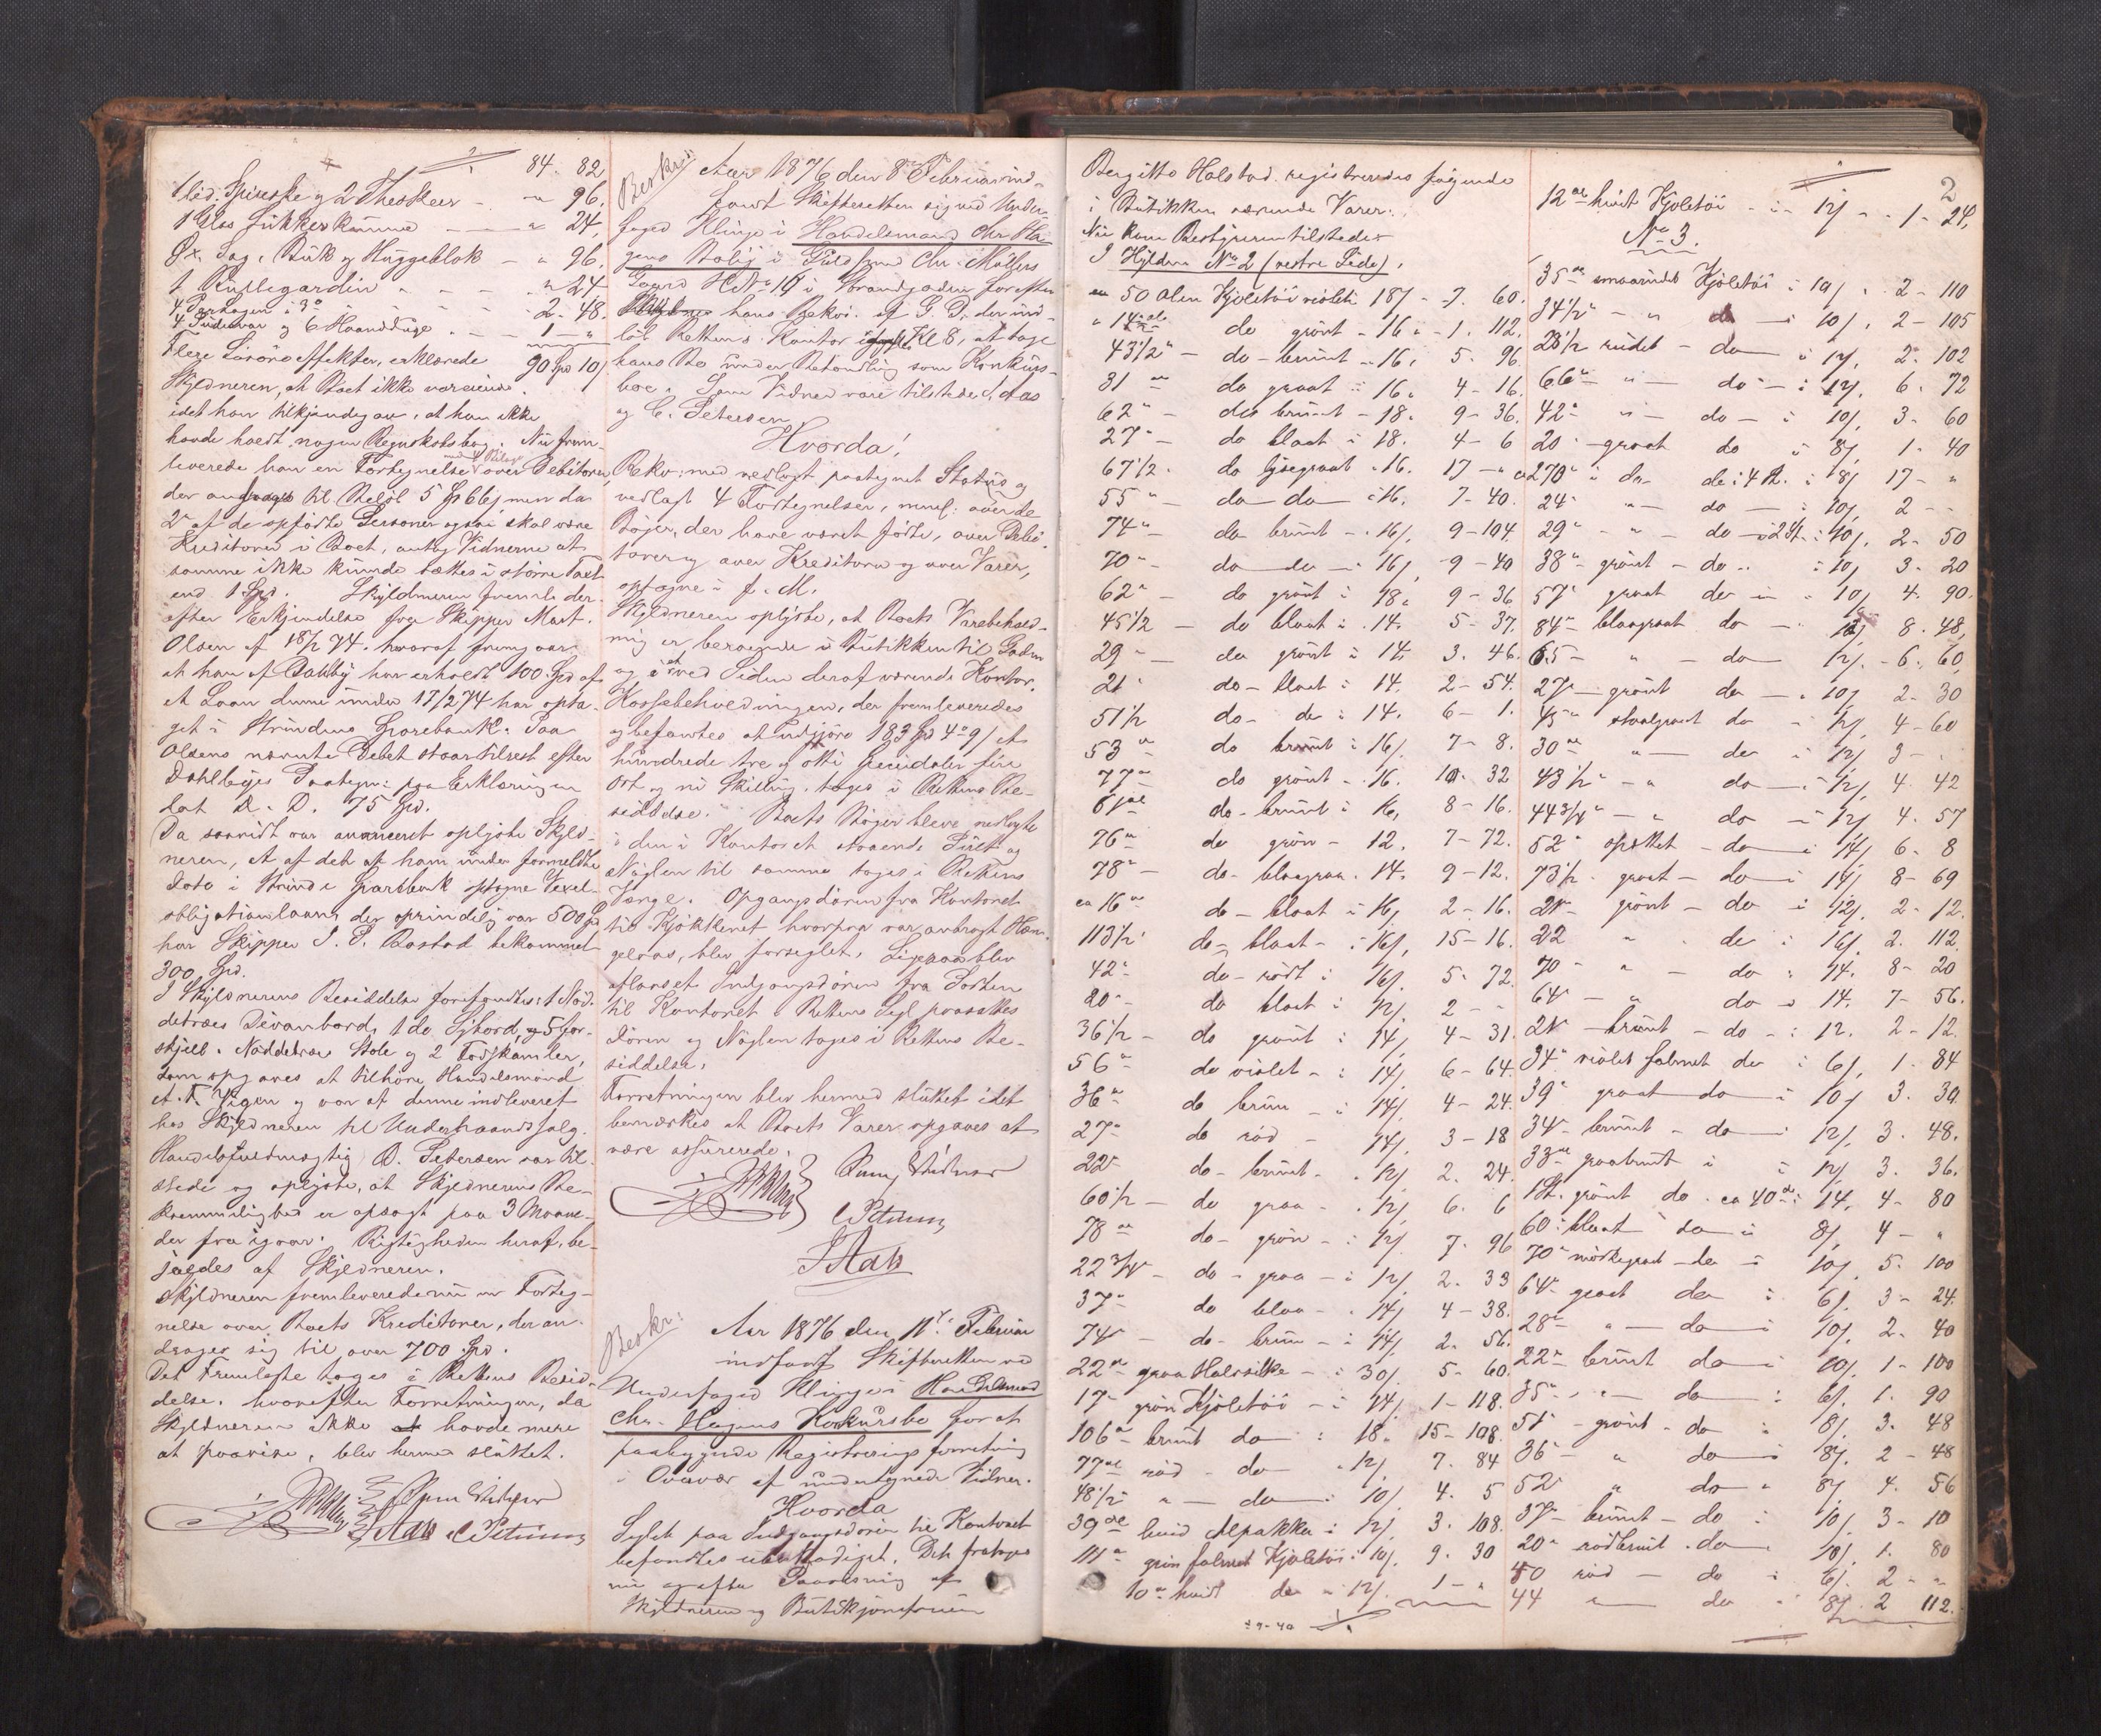 84. 82
1 lid. Spiseske og 2 Theskeer - " 96.
1 Glas Sukkerkumme - " 24.
Øx. Sag, Buk og Huggeblok - " 96.
1 Rullegardin " 24
4 Parlagen à 3
4 Pudevar og 6 Haandduge - 1 - "
2. 48.
90 Spd 10
Flere Løsøreeffekter, erklærede
Skyldneren, at Boet ikke var eiende
idet han tilkjendegav, at han ikke
havde holdt nogen Regnskabsbog. Nu frem-
leverede han en Fortegnelse over Debitorer,
der andrages til Beløb 5 Spd 66 men da
2 af de opførte Personer ogsaa skal være
Kreditorer i Boet, antog Vidnerne at
samme ikke kunde sættes i større Taxt
end 1 Spd. Skyldneren fremla der-
efter Erkjendelse fra Skipper Mart.
Olsen af 18/2 74. hvoraf fremgaar
at han af Dahlby har erholdt 100 Spd af
et Laan denne under 17/2 74 har opta-
get i Strindens Sparebank. Paa
Olsens nævnte Debet staar tilrest efter
Dahlbyes Paategn: paa Erklæringen
dat D. D. 75 Spd.
Da saavidt var avanceret oplyste Skyld-
neren, at af det af ham under formeldte
Dato i Strinde Sparebank optagne Vexel-
obligationslaan, der oprindelig var 500 Spd
har Skipper J. P. Bostad bekommet
300 Spd.
I Skyldnerens Besiddelse forefandtes: 1 Nød-
detræes Divanbord, 1 do Sybord, og 5 for-
skjell. Nøddetræes Stole og 2 Fodskamler,
som opgaves at tilhøre Handelsmand
og var af denne indleveret
hos Skyldneren til Underhaandssalg.
Handelsfuldmægtig O. Petersen var til-
stede og oplyste, at Skyldnerens Be-
kvemmelighed er opsagt paa 3 Maane-
der fra igaar. Rigtigheden heraf be-
jaedes af Skyldneren.
Skyldneren fremleverede nu en Forteg-
nelse over Boets Kreditorer, der an-
drager sig til over 700 Spd.
Det Fremlagte toges i Rettens Besid-
delse. hvorefter Forretningen, da
Skyldneren ikke havde mere
at paavise, blev hermed sluttet.
Staas C Petersen
Beskr:
Aar 1876 den 8de Februar ind-
fandt Skifteretten sig ved Under-
foged Klinge i Handelsmand Chr. Ha-
gens Bolig i Guldsmed Chr. Møllers
Gaard No 10 i Strandgaden for efter
hans Rekvi. af G. D. der ind-
løb Rettens Kontor Kl 8, at tage
hans Bo under Behandling som Konkurs-
boe. Som Vidner vare tilstede Staas
og C. Petersen
Hvorda!
Rekv: med vedlagt paategnet Status og
vedlagt 4 Fortegnelser, over de
Bøger, der have været førte, over Debi-
torer og over Kreditorer og over Varer,
optagne i f. M.
Skyldneren oplyste, at Boets Varebehold-
ning er beroende i Butikken til Gaden
og i et ved Siden deraf værende Kontor.
Kassebeholdningen, der fremleveredes
og befandtes at udgjøre 183 Spd 4 9 et
hundrede tre og otti Speciedaler fire
Ort og ni Skilling, toges i Rettens Be-
siddelse. Boets Bøger bleve nedlagte
i den i Kontoret staaende Pult og
Nøglen til samme toges i Rettens
Værge. Opgangsdøren fra Kontoret
til Kjøkkenet hvorpaa var anbragt Hæn-
gelaas, blev forseglet, Ligesaa blev
aflaaset Indgangsdøren fra Porten
til Kontoret. Rettens Segl paasattes
Døren og Nøglen toges i Rettens Be-
siddelse.
Forretningen blev hermed sluttet idet
bemærkes at Boets Varer opgaves at
være assurerede.
C Petersen
Staas
Beskr:
Aar 1876 den 11te Februar
indfandt Skifteretten ved
Underfoged Klinge i Handelsmand
Chr. Hagens Konkursbo for at
paabegynde Registreringsforretning
i Overvær af undertegnede Vidner.
Hvorda
Seglet paa Indgangsdøren til Kontoret
befandtes ubeskadiget. Det fratoges
nu og efter Paavisning af
Skyldneren og Butikjomfruen
2
Bergitte Halstad registreredes følgende
i Butikken værende Varer:
Nu kom Bestyreren tilstede
I Hylden No 2 (vestre Side).
ca 50 Alen Kjoletøi violet à 18 - 7. 60.
" 14 al do grønt - 16 - 1. 112.
43 1/2 " - do - brunt - 16. 5. 96
31 al do graat à 16. 4 - 16.
62 " - do brunt - 18. 9 - 36.
27 " - do blaat à 18. 4 - 6
67 1/2 - do lysegraat - 16. 17 - "
55 " - do do à 16. 7 - 40.
74 " - do brunt - 16 9 - 104.
70 " - do do - 16 9 - 40
62 " - do grønt à 18. 9 - 36
45 1/2 - do blaat à 14. 5 - 37.
29 " - do grønt à 14 3. 46.
21 " do - blaat à 14. 2 - 54.
51 1/2 do - do à 14. 6 - 1.
53 " do brunt à 16 7 - 8.
77 " do grønt - 16. 10. 32
61 al do - brunt à 16. 8 - 16.
76 " do grøn - 12. 7 - 72.
78 " - do - blaagraa - 14. 9 - 12.
ca 16 al do - blaat à 16 2 - 16.
113 1/2 do - blaat - à 16 15 - 16.
42 " do - rødt à 16 5 - 72
20 " - do blaat à 12 2 - -
36 1/2 - do grønt à 14 4 - 31.
56 " do violet - à 14 6 - 64.
36 " do brun - à 14 4 - 24.
27 " do rød - 14 3 - 18
22 - do - brunt - 12 2. 24.
60 1/2 - do graa - 12 6. 6
78 al do - grøn - à 12 7. 96
22 3/4 - do - graa - à 12 2. 33
37 " do blaa - 14 4 - 38.
74 - do - brun - à 14 2. 56.
22 al graa Halvsilke - à 30 5 - 60.
17 - grøn Kjoletøi - à 14 1 - 118.
106 " - brunt do à 18. 15 - 108.
77 al rød - do - 12 7. 84
48 1/2 " - do - 10 4. 5
39 al hvid Alpakka à 12 3. 108.
111 " grøn falmet Kjoletøi à 10 9. 30
10 " hvidt do à 12 1 - "
12 al hvidt Kjoletøi - à 12 - 1 - 24.
No 3.
35 al smaarudet Kjoletøi à 10 2 - 110
34 1/2 " - " do - à 10 2 - 105
28 1/2 rudet - do à 12 2. 102
66 " " - do - à 12 6. 72
42 " " - do - à 10 3. 60
20 " - graat do à 8 1. 40
270 " à do - do i 4 St. à 8 17 - "
24 " " - do - à 10 2 - -
29 " - " - do - i 2 St. à 10 2 - 50
38 " - grønt - do à 10 3 - 20
57 " graat do à 10 4. 90.
84 " - blaagraat do - 12 8. 48,
65 - " - do - 12 - 6. 60
27 - grønt do - 10 2 - 30
45 " staalgraat do - à 12 4 - 60
30 al " - do à 12 3 - "
43 1/2 " - " do - à 12 4. 42
44 3/4 " - " do à 12 4. 57
52 " do à 14 6 - 8
73 1/2 - graat - do à 14 8 - 69
21 grønt - do à 12 2 - 12.
22 " do à 16 2. 112
70 " " - do à 14. 8 - 20
64 - " do à 14. 7 - 56.
21 - brunt - do - à 12. 2 - 12
34 " violet falmet do à 6 1. 84
39 " graat do à 10 3. 30
34 - brunt - do à 12 3. 48.
33 al graabrunt à à 12 3. 36.
1 St. grønt do ca 40 al à 14. 4 - 80
60 " blaat do à 8 4 - "
70 " mørkegraat - do à 10 5. 100
64 graat do à 6 3 - 24.
28 " " - do à 10 2. 40
22 " brunt do à 10 1 - 100
35 " " - do à 6 1. 90
51 - grønt - do à 8 3. 48
36 - " do à 8 2 - 48
52 " do " 8 4. 56
37 - brunt - do à 10 3 - 10
20 " rødbrunt - do 10 1. 80
40 rød - do à 6 2 - "
44 " do à 8 2 112.